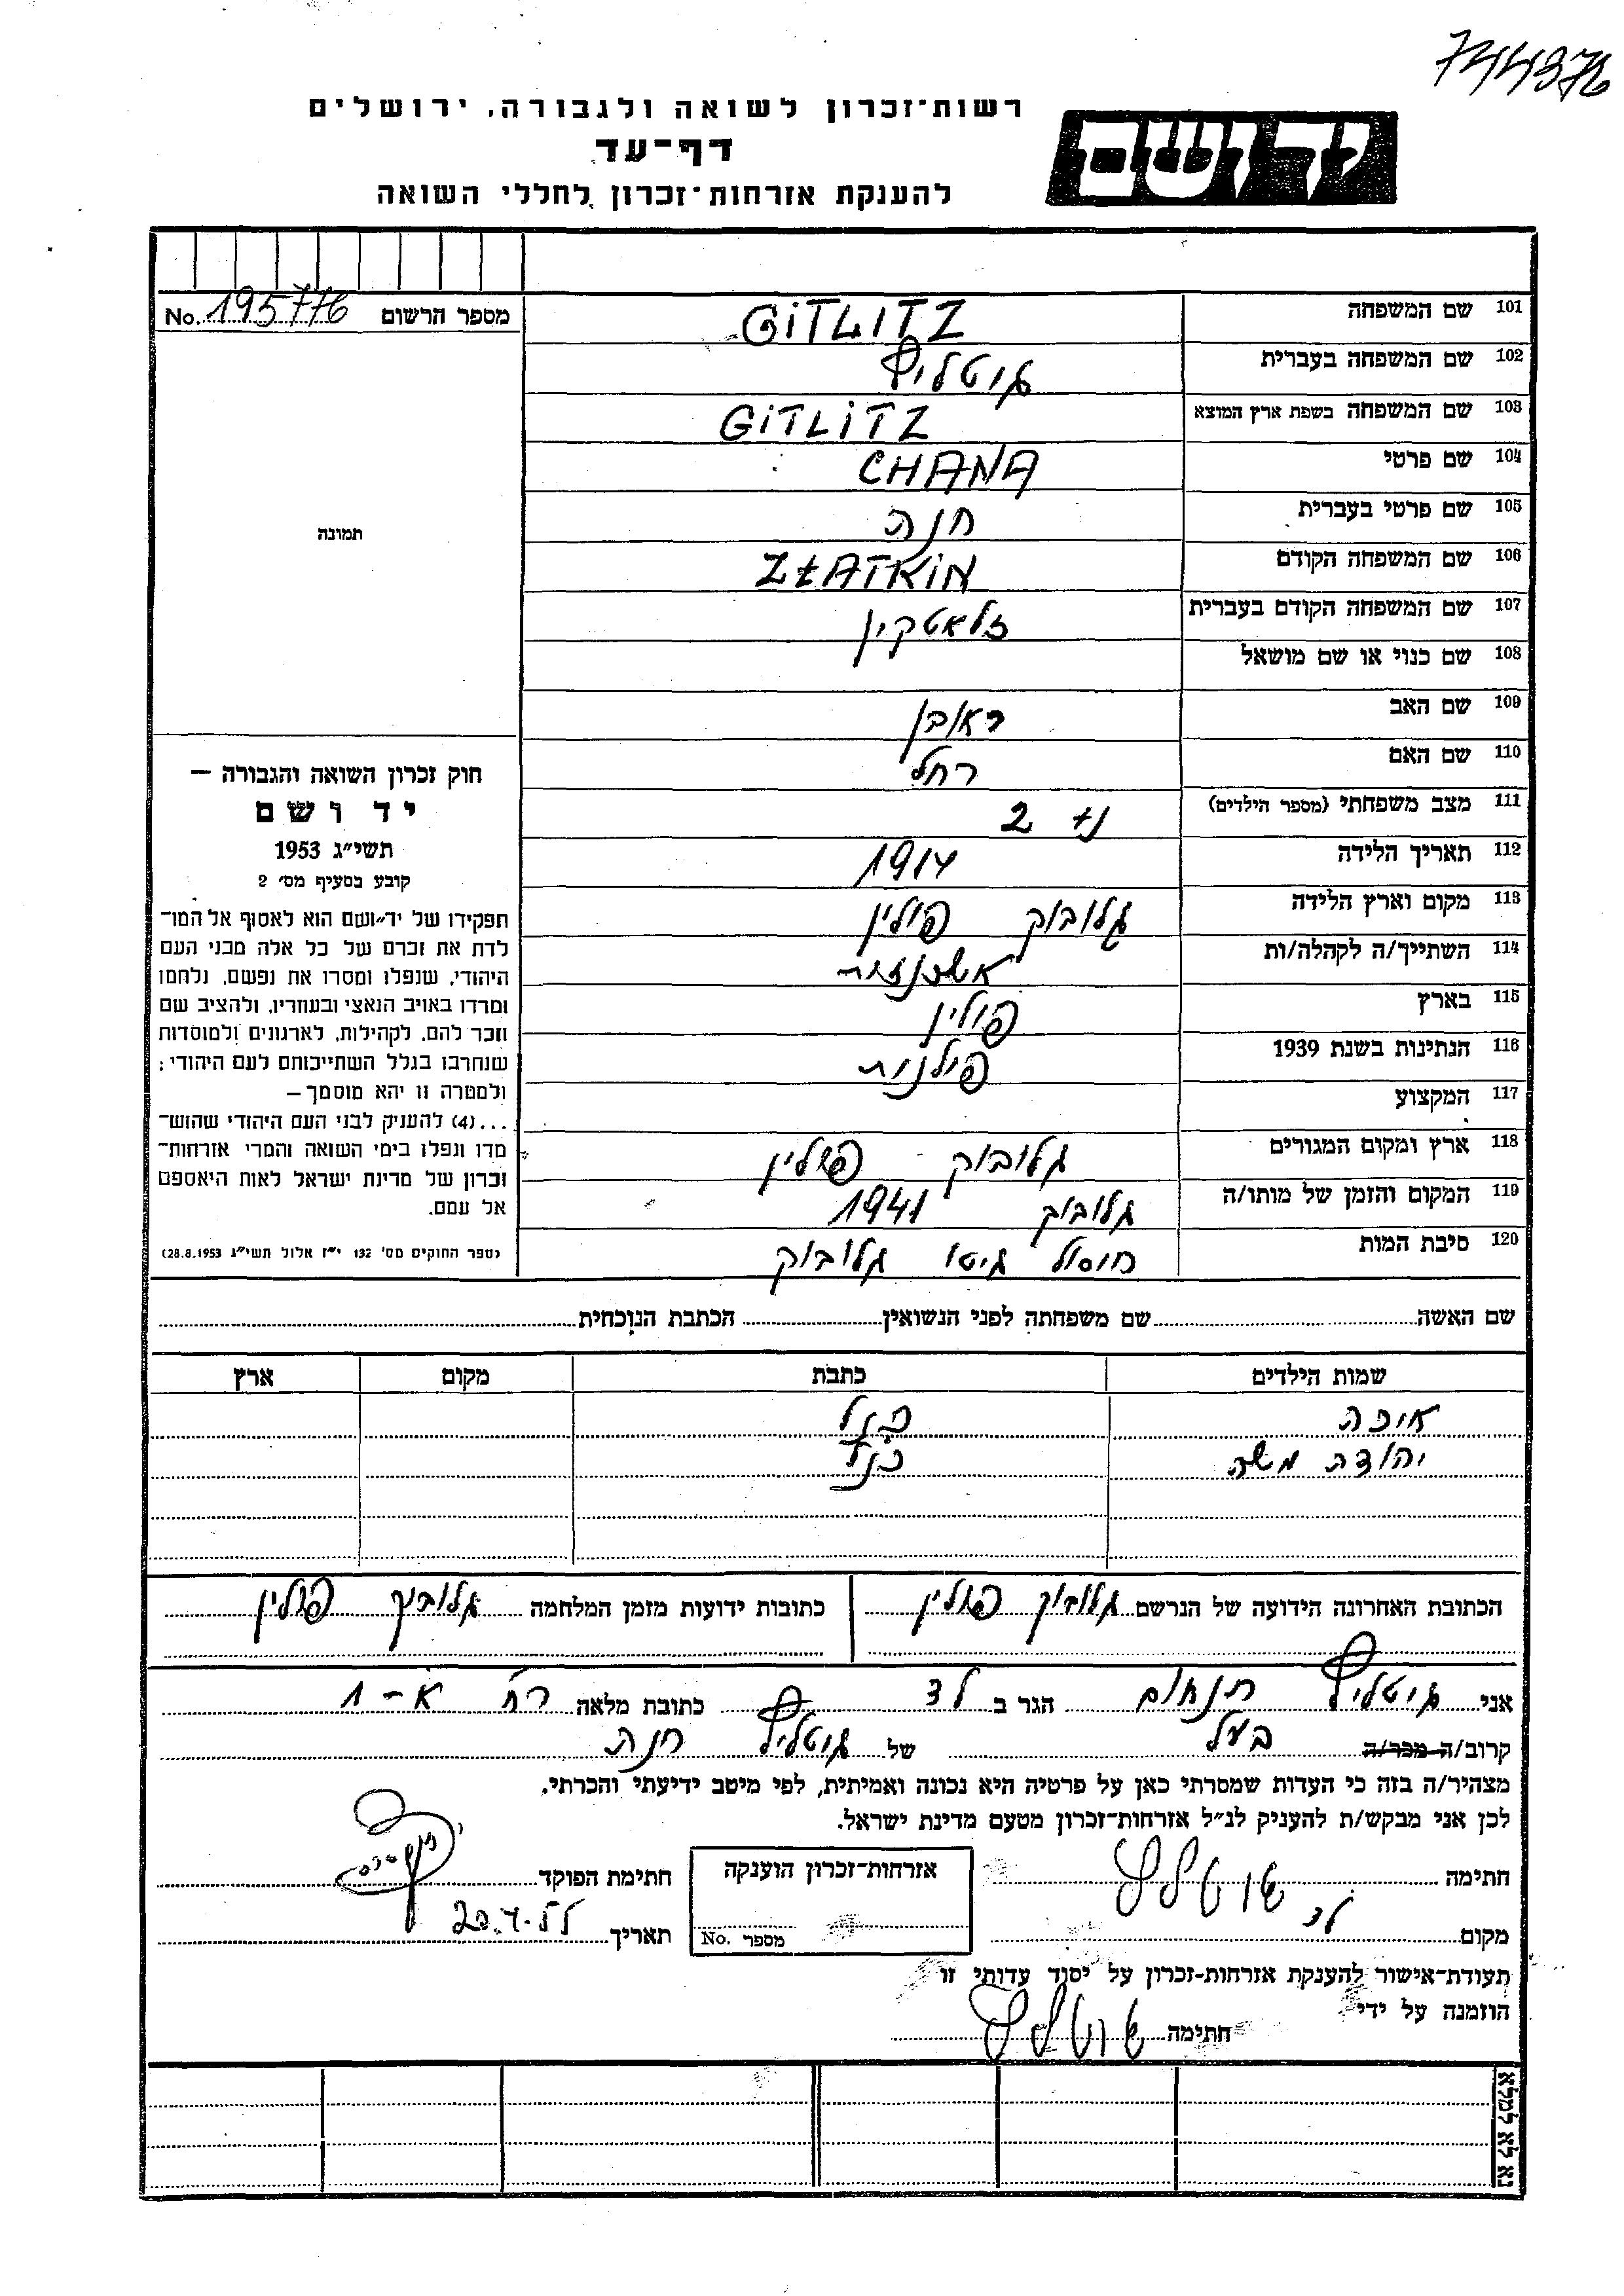 744376
רשות־זכרון לשואה ולגבורה, ירושלים
יד ושם
דף־עד
להענקת אזרחות־זכרון לחללי השואה
מספר הרשום No. 195776
תמונה
101 שם המשפחה GiTLITZ
102 שם המשפחה בעברית גיטליץ
103 שם המשפחה בשפת ארץ המוצא GiTLiTZ
104 שם פרטי CHANA
105 שם פרטי בעברית חנה
106 שם המשפחה הקודם ZŁATKiN
107 שם המשפחה הקודם בעברית זלאטקין
108 שם כנוי או שם מושאל
109 שם האב ראובן
110 שם האם רחל
111 מצב משפחתי (מספר הילדים) נ+ 2
112 תאריך הלידה 1914
113 מקום וארץ הלידה גלובוק פולין
114 השתייך/ה לקהלה/ות אשכנזית
115 בארץ פולין
116 הנתינות בשנת 1939 פולנית
117 המקצוע
118 ארץ ומקום המגורים גלובוק פולין
119 המקום והזמן של מותו/ה גלובוק 1941
120 סיבת המות חוסול גיטו גלובוק
חוק זכרון השואה והגבורה —
יד ושם
תשי״ג 1953
קובע בסעיף מס׳ 2
תפקידו של יד־ושם הוא לאסוף אל המו־
לדת את זכרם של כל אלה מבני העם
היהודי, שנפלו ומסרו את נפשם, נלחמו
ומרדו באויב הנאצי ובעוזריו, ולהציב שם
וזכר להם, לקהילות, לארגונים ולמוסדות
שנחרבו בגלל השתייכותם לעם היהודי;
ולמטרה זו יהא מוסמך —
...(4) להעניק לבני העם היהודי שהוש־
מדו ונפלו בימי השואה והמרי אזרחות־
זכרון של מדינת ישראל לאות היאספם
אל עמם.
(ספר החוקים מס׳ 132 י״ז אלול תשי״ג 28.8.1953)
שם האשה שם משפחתה לפני הנשואין הכתבת הנוכחית
שמות הילדים כתבת מקום ארץ
איכה כנ״ל
יהודה משה כנ״ל
הכתובת האחרונה הידועה של הנרשם גלובוק פולין
כתובות ידועות מזמן המלחמה גלובוק פולין
אני גיטליץ תנחום הגר ב לד כתובת מלאה רח׳ א-1
קרוב/ה מכר/ה בעל של גיטליץ חנה
מצהיר/ה בזה כי העדות שמסרתי כאן על פרטיה היא נכונה ואמיתית, לפי מיטב ידיעתי והכרתי.
לכן אני מבקש/ת להעניק לנ״ל אזרחות־זכרון מטעם מדינת ישראל.
חתימה
אזרחות־זכרון הוענקה
חתימת הפוקד
מקום לד
מספר No.
תאריך 20.4.55
תעודת־אישור להענקת אזרחות־זכרון על יסוד עדותי זו
הוזמנה על ידי
חתימה
נא לא למלא